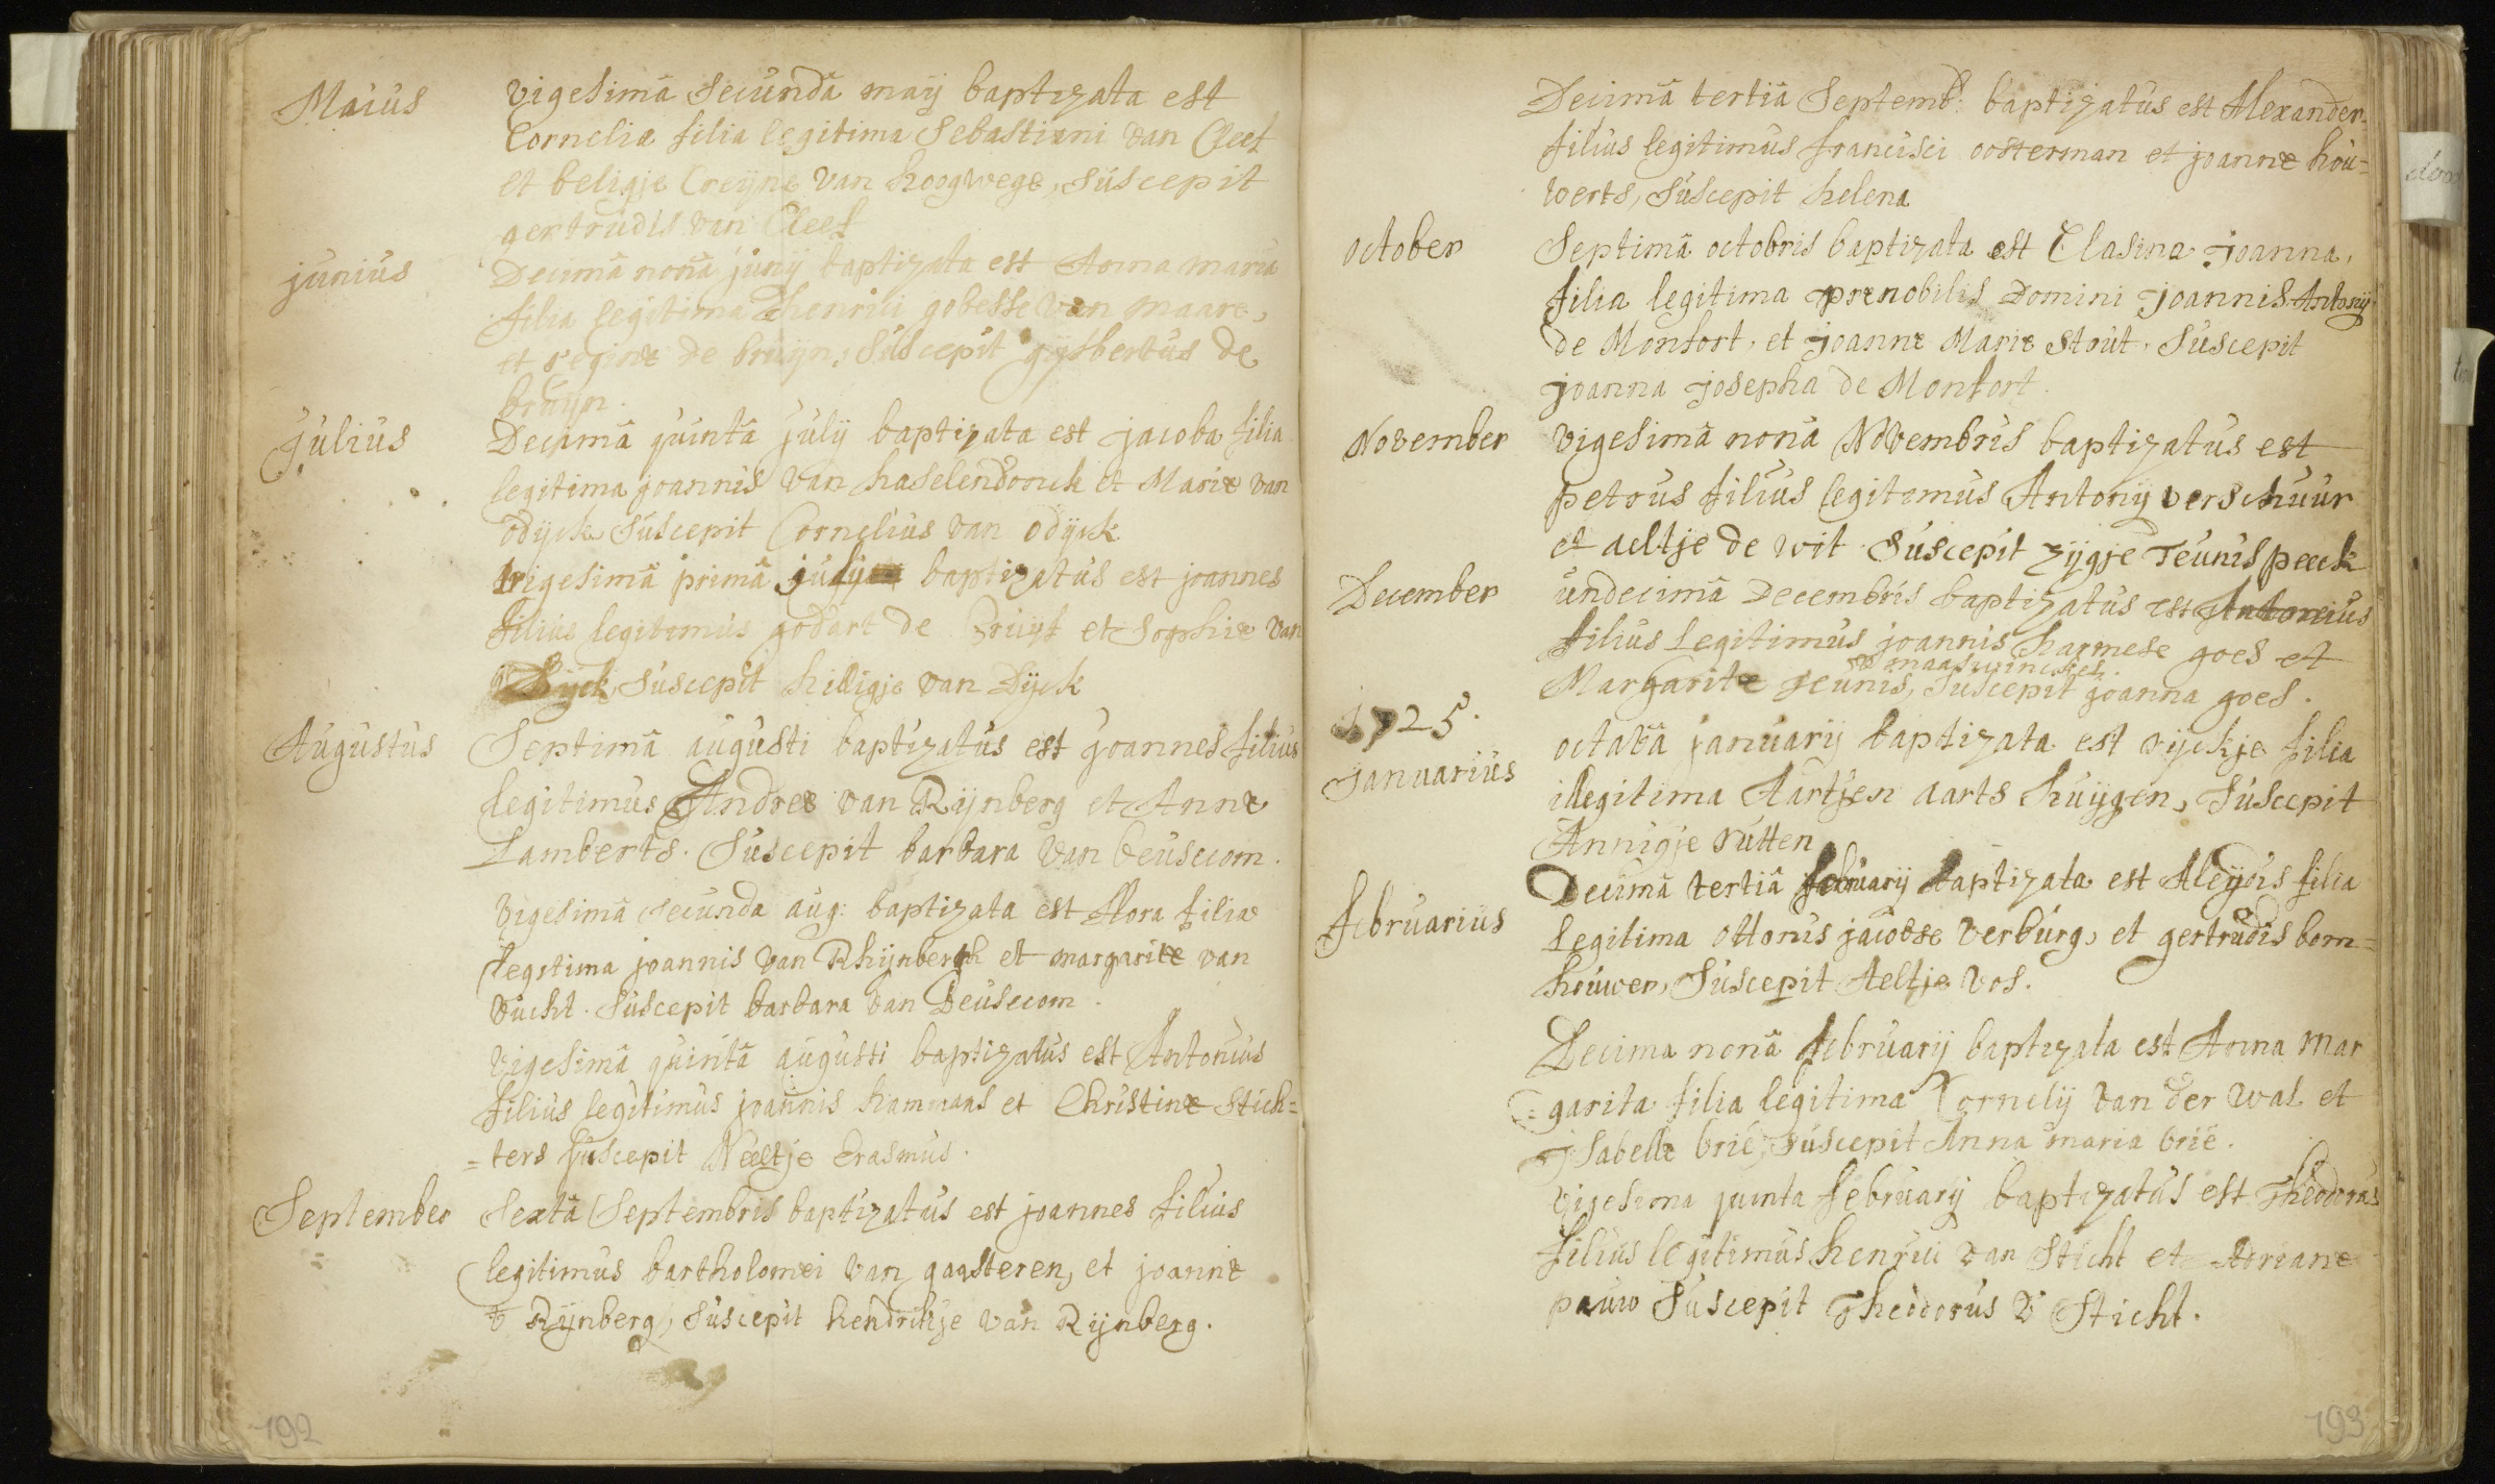 Maius
vigesimâ secundâ maij baptizata est
Cornelia filia legitima Sebastiani van Cleef
et beligje Creijne van hoogwege, suscepit
gertrudis van Cleef
junius
Decimâ nonâ junij baptizata est Anna maria
filia legitima henrici gobesse van maare,
et reginæ de bruijn, suscepit gijsbertus de
bruijn.
Julius
Decimâ quintâ julij baptizata est jacoba filia
legitima joannis van haselendonck et Mariæ van
odijck suscepit Cornelius van odijck
trigesimâ primâ julij baptizatus est joannes
filius legitimus godart de Bruijf et Sophiæ van
Dijck, suscepit hilligje van Dijck
Augustus
Septimâ augusti baptizatus est joannes filius
legitimus Andreæ van Rijnberg et Annæ
Lamberts. Suscepit barbara van beusecom.
vigesimâ secunda aug: baptizata est flora filia
legitima joannis van Rhijnbergh et margaritæ van
vucht. suscepit barbara van Beusecom.
vigesimâ quintâ augusti baptizatus est Antonius
filius legitimus joannis hammans et Christinæ Stich=
=ters suscepit Neeltje Erasmus.
September
Sextâ Septembris baptizatus est joannes filius
legitimus bartholomæi van gaasteren, et joannæ
v Rijnberg, suscepit hendrikje van Rijnberg.
192
Decimâ tertiâ Septemb: baptizatus est Alexander
filius legitimus francisci oosterman et joannæ hou=
werts, suscepit helena
october
Septimâ octobris baptizata est Clasina joanna,
filia legitima prænobilis Domini joannis Antonij
de Monfort, et joannæ Mariæ Stout. Suscepit
joanna josepha de Monfort.
November
vigesimâ nonâ Novembris baptizatus est
petrus filius legitimus Antonij verschuur
et aeltje de wit. Suscepit zijgje Teunis peeck
December
undecimâ Decembris baptizatus est Antonius
filius legitimus joannis harmese goes et
v maaswinckel.
Margaritæ Teunis, suscepit joanna goes.
1725.
januarius
octavâ januarij baptizata est rijckje filia
illegitima Aartjen aarts huijgen, suscepit
Annigje rutten
februarius
Decimâ tertiâ februarij baptizata est Aleijdis filia
legitima ottonis jacobse verburg, et gertrudis bom=
houwer, suscepit Aeltje vos.
Decima nonâ februarij baptizata est Anna mar
=garita filia legitima Cornelij van der wal et
jsabellæ brié, suscepit Anna maria brié.
vigesima quinta februarij baptizatus est Theodorus
filius legitimus henrici van Sticht et Adrianæ
pauw Suscepit Theodorus v Sticht.
193